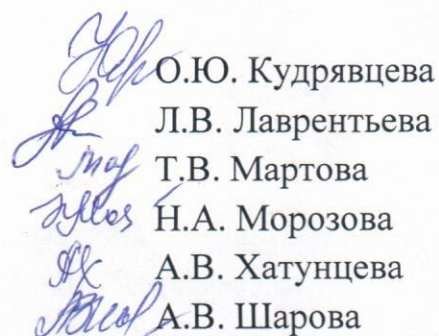 О.Ю. Кудрявцева
Л.В. Лаврентьева
Т.В. Мартова
Н.А. Морозова
А.В. Хатунцева
А.В. Шарова